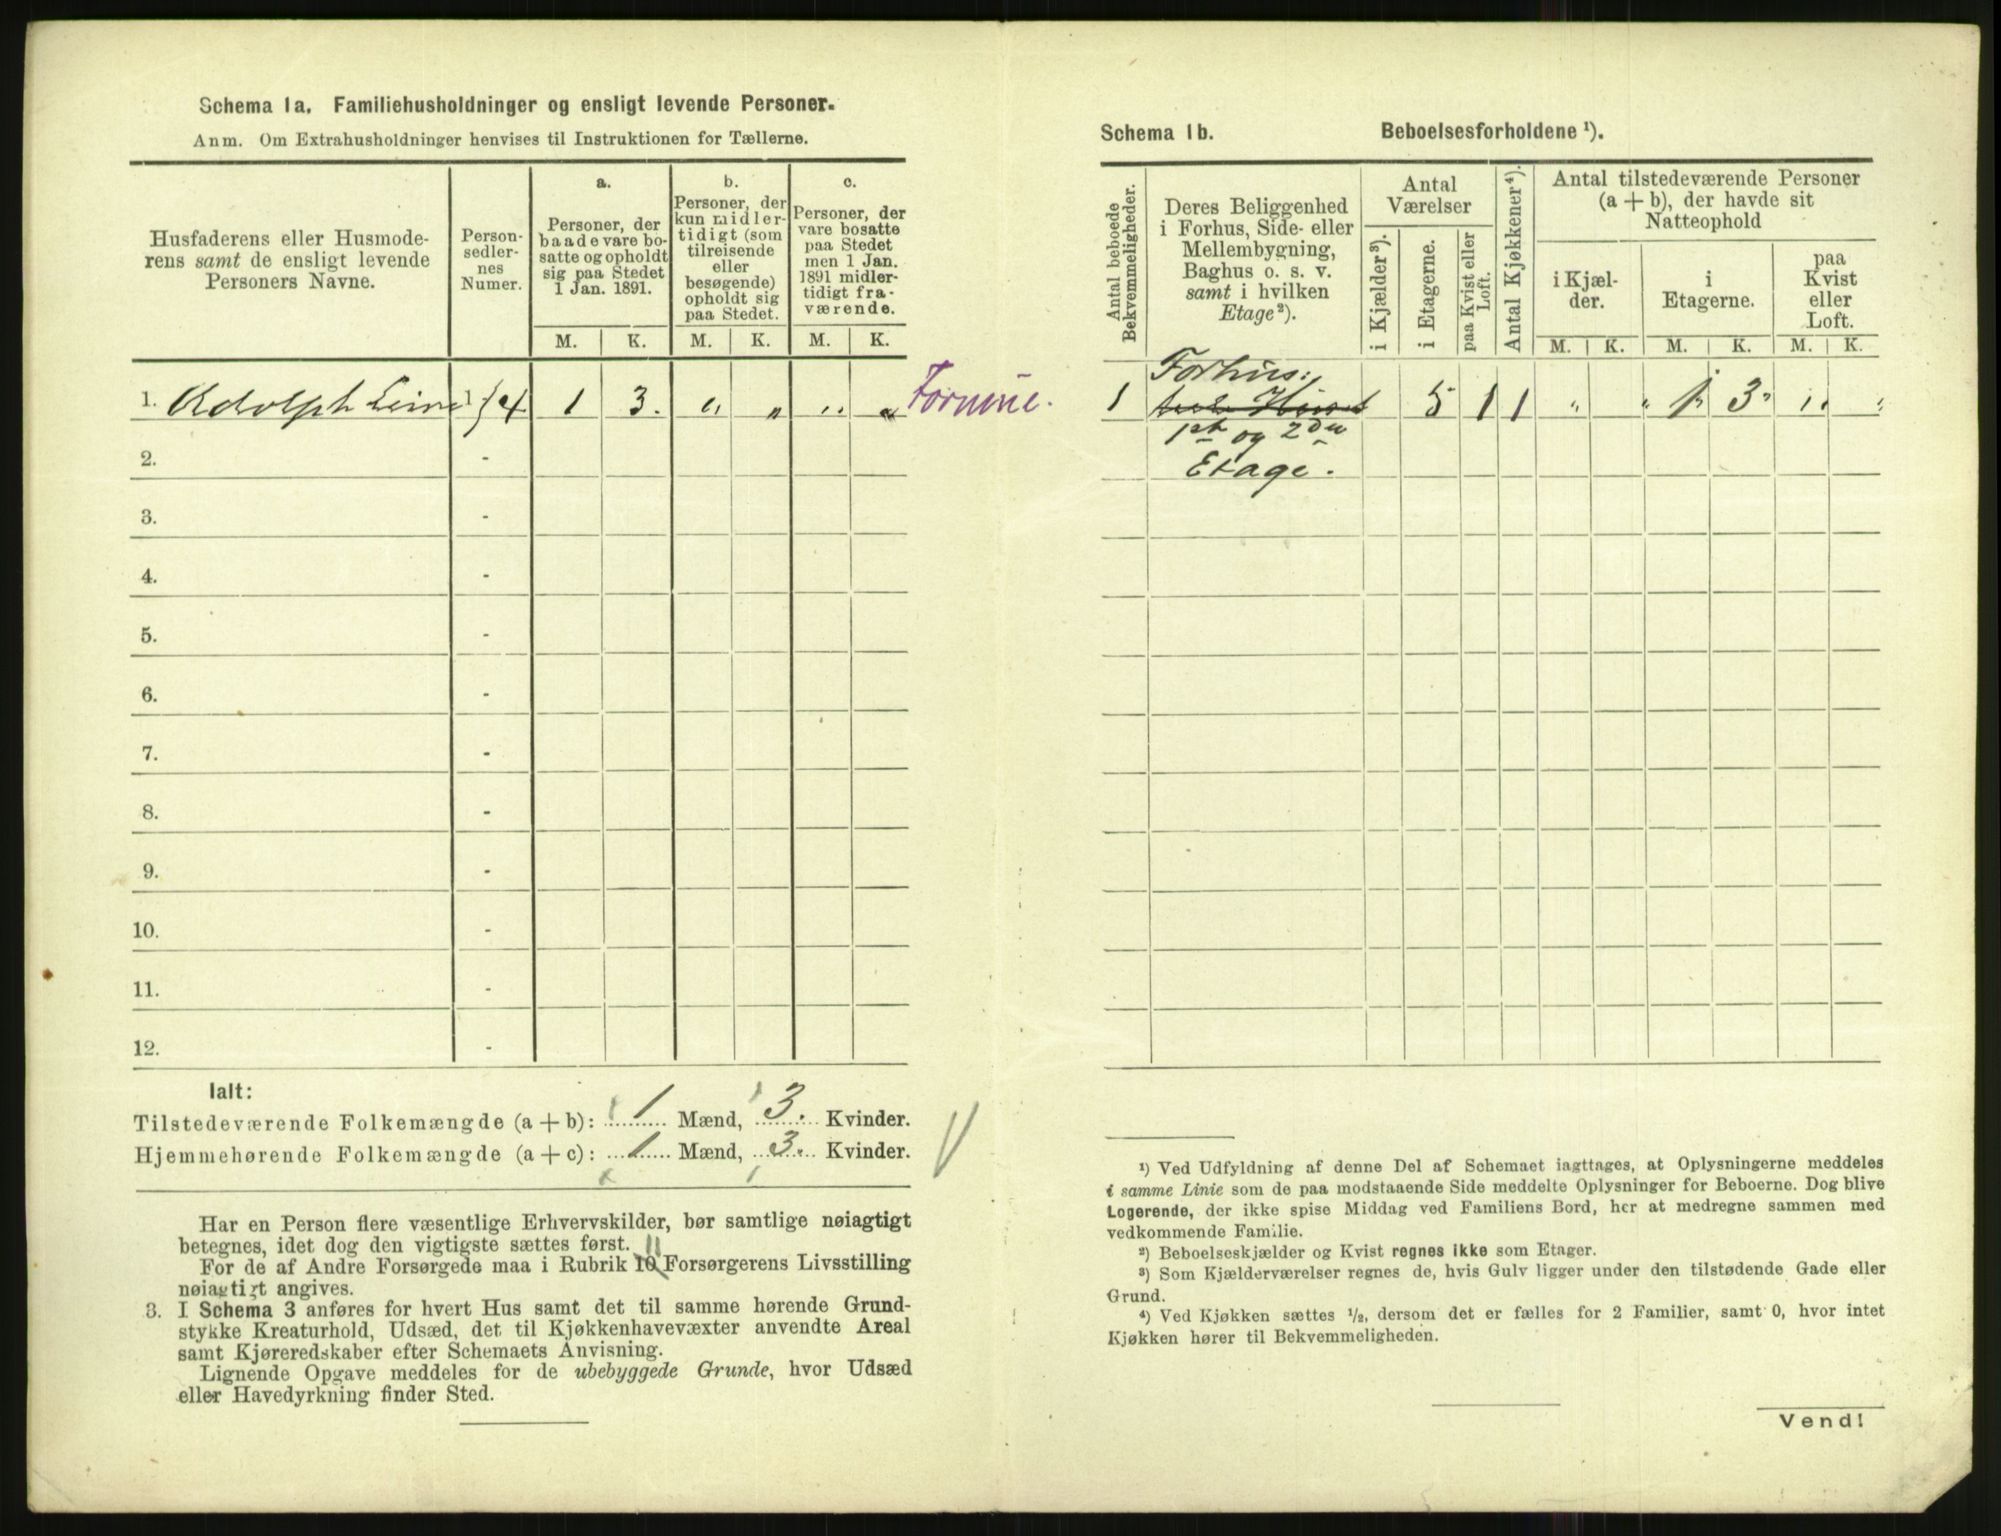 Schema 1a. Familiehusholdninger og ensligt levende Personer.
Anm. Om Extrahusholdninger henvises til Instruktionen for Tællerne.
Husfaderens eller Husmode-
rens samt de ensligt levende
Personers Navne.
Person-
sedler-
nes
Numer.
a.
Personer, der
baade vare bo-
satte og opholdt
sig paa Stedet
1 Jan. 1891.
b.
Personer, der
kun midler-
tidigt (som
tilreisende
eller
besøgende)
opholdt sig
paa Stedet.
c.
Personer, der
vare bosatte
paa Stedet
men 1 Jan.
1891 midler-
tidigt fra-
værende.
M. K. M. K. M. K.
1. Adolph 1 4 1 3. " " " "
2. -
3. -
4. -
5. -
6. -
7. -
8. -
9. -
10. -
11. -
12. -
Ialt:
Tilstedeværende Folkemængde (a + b): 1 Mænd, 3. Kvinder.
Hjemmehørende Folkemængde (a + c): 1 Mænd, 3. Kvinder.
Har en Person flere væsentlige Erhvervskilder, bør samtlige nøiagtigt
betegnes, idet dog den vigtigste sættes først.
11
For de af Andre Forsørgede maa i Rubrik 10 Forsørgerens Livsstilling
nøiagtigt angives.
3. I Schema 3 anføres for hvert Hus samt det til samme hørende Grund-
stykke Kreaturhold, Udsæd, det til Kjøkkenhavevæxter anvendte Areal
samt Kjøreredskaber efter Schemaets Anvisning.
Lignende Opgave meddeles for de ubebyggede Grunde, hvor Udsæd
eller Havedyrkning finder Sted.
Schema 1b. Beboelsesforholdene ¹).
Antal beboede
Bekvemmeligheder.
Deres Beliggenhed
i Forhus, Side- eller
Mellembygning,
Baghus o. s. v.
samt i hvilken
Etage²).
Antal
Værelser
i Kjælder³).
i Etagerne.
paa Kvist eller
Loft.
Antal Kjøkkener⁴).
Antal tilstedeværende Personer
(a + b), der havde sit
Natteophold
i Kjæl-
der.
i
Etagerne.
paa
Kvist
eller
Loft.
M. K. M. K. M. K.
1 Forhus: 5 1 1 " " 1 3 " "
1ste og 2den
Etage.
¹) Ved Udfyldning af denne Del af Schemaet iagttages, at Oplysningerne meddeles
i samme Linie som de paa modstaaende Side meddelte Oplysninger for Beboerne. Dog blive
Logerende, der ikke spise Middag ved Familiens Bord, her at medregne sammen med
vedkommende Familie.
²) Beboelseskjælder og Kvist regnes ikke som Etager.
³) Som Kjælderværelser regnes de, hvis Gulv ligger under den tilstødende Gade eller
Grund.
⁴) Ved Kjøkken sættes ½, dersom det er fælles for 2 Familier, samt 0, hvor intet
Kjøkken hører til Bekvemmeligheden.
Vend!